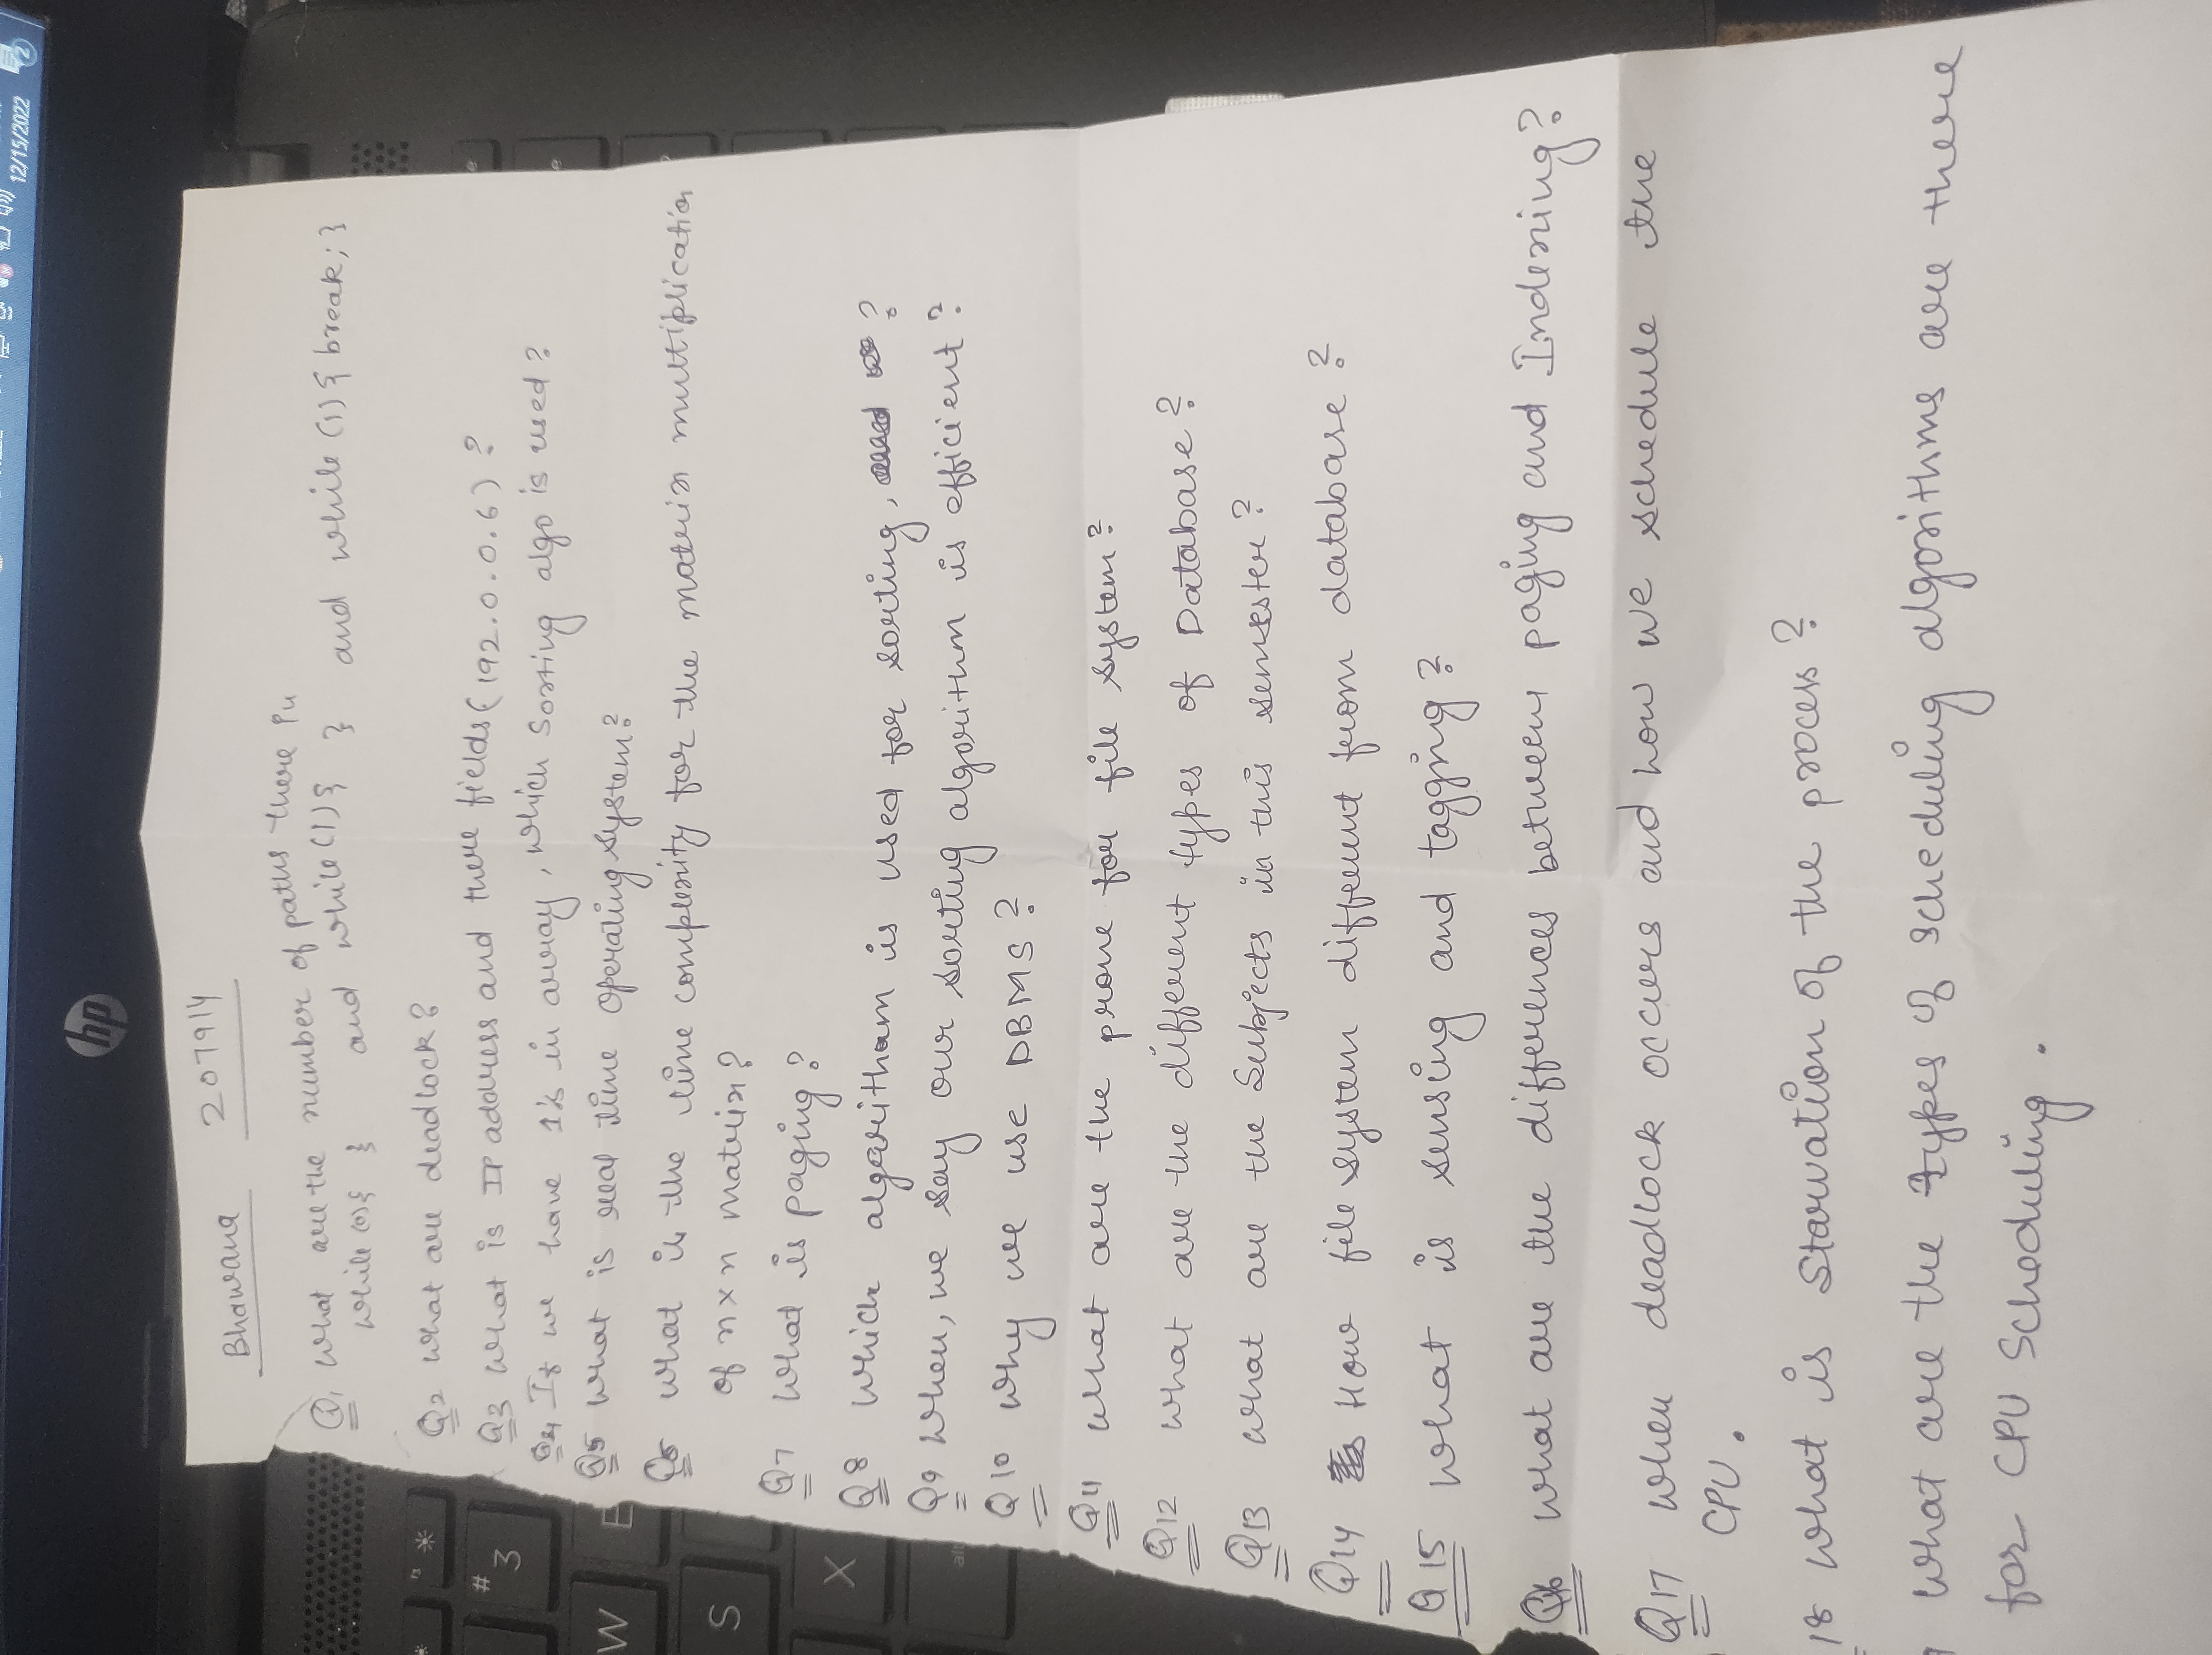 12/15/2022
2
hp
Bhawana 207914
Q1 What are the number of paths there in
while(0){ } and while(1){ } and while(1){ break; }
Q2 What are deadlock?
Q3 What is IP address and there fields (192.0.0.6)?
Q4 If we have 1's in array, which Sorting algo is used?
Q5 What is real time Operating System?
Q6 What is the time complexity for the matrix multiplication
of n×n matrix?
Q7 What is paging?
Q8 Which algaritham is used for sorting, ?
Q9 When, we say our sorting algorithm is efficient?
Q10 Why we use DBMS?
Q11 What are the prone for file system?
Q12 What are the different types of Database?
Q13 What are the Subjects in this semester?
Q14 How file system different from database?
Q15 What is sensing and tagging?
Q16 What are the differences between paging and Indexing?
Q17 When deadlock occurs and how we schedule the
CPU.
18 What is Starvation of the process?
What are the types of scheduling algorithms are there
for CPU Scheduling.
# 3
W E
S
X
alt